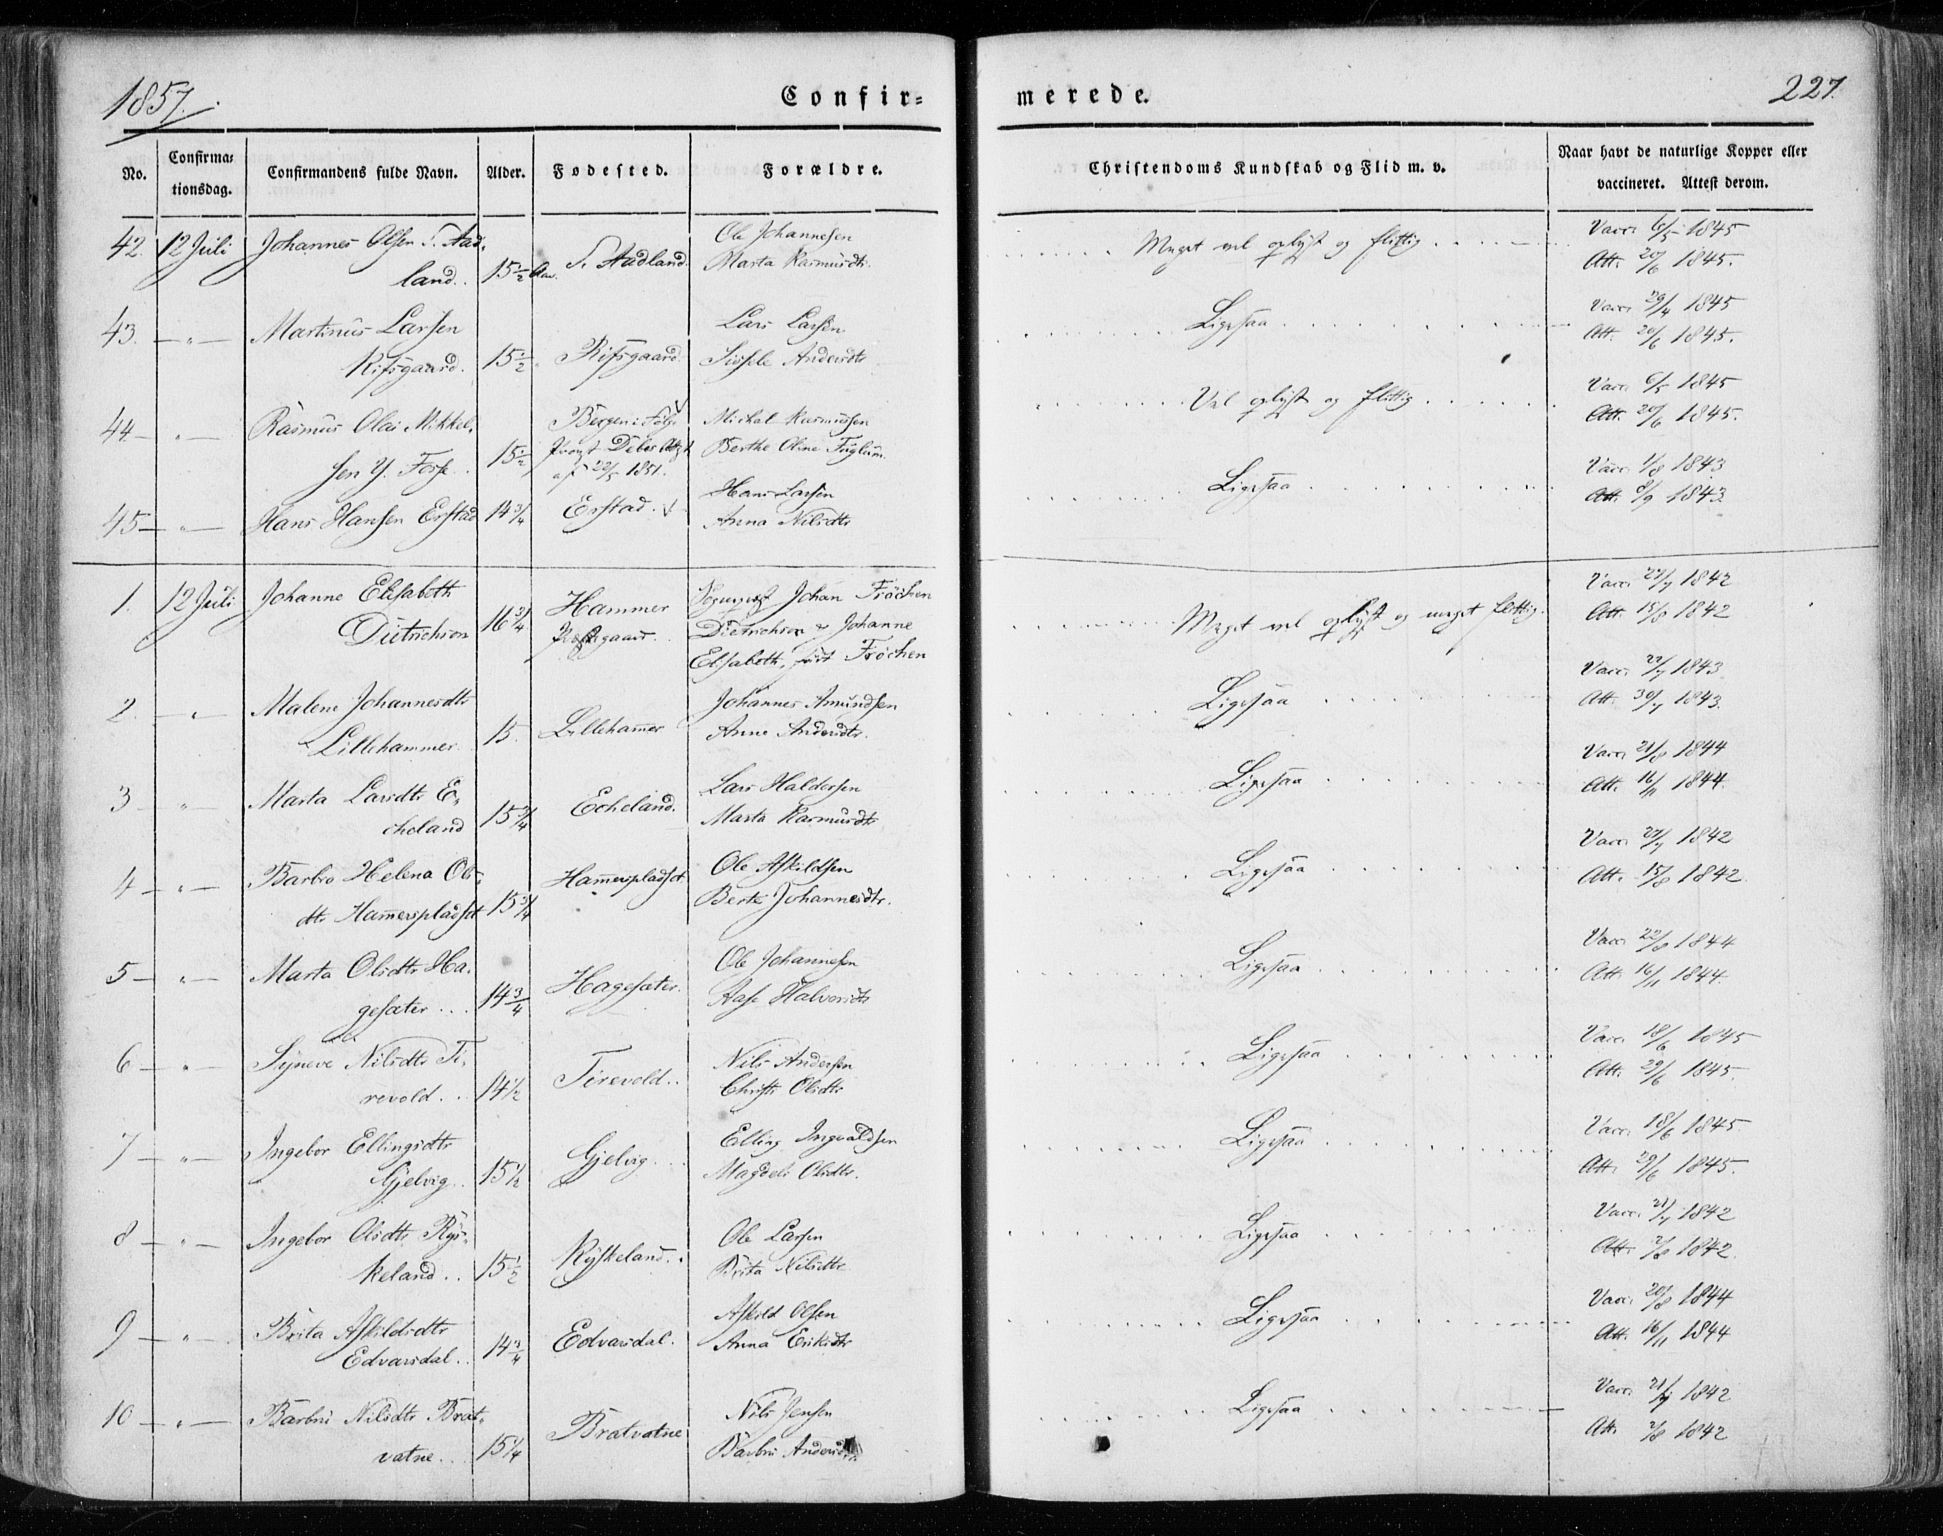 1857.
Confir=
merede.
227.
No.
Confirma=
tionsdag.
Confirmandens fulde Navn.
Alder.
Fødested.
Forældre.
Christendoms Kundskab og Flid m. v.
Naar havt de naturlige Kopper eller
vaccineret. Attest derom.
42. 12 Juli Johannes Olsen S. Aad- Ole Johannesen Meget vel oplyst og flittig Vacc. 6/5 1845
land. 15 1/2 Aar. S. Aadland. Marta Rasmusdtr. Att. 20/6 1845.
43. — " — Martinus Larsen Lars Larsen Ligesaa Vacc. 29/4 1845
Rissgaard. 15 1/2 Rissgaard. Sissele Andersdtr Att. 20/6 1845.
44 — " — Rasmus Olai Mikkel- Bergen: Følge Mickal Rasmussen Vel oplyst og flittig Vacc. 6/5 1845
sen Y. Fosse 15 1/2 Provst Debes Attest Berthe Oline Fuglum Att. 20/6 1845.
af 22/5 1851.
45 — " — Hans Hansen Erstad 14 3/4 Erstad. Hans Larsen Ligesaa Vacc. 1/8 1843
Anna Nilsdtr Att. 8/9 1843
1. 12 Juli Johanne Elisabeth 16 3/4 Hammer Sognepræst Johan Frøchen Meget vel oplyst og meget flittig. Vacc. 27/7 1842
Dietrichson Præstgaard Dietrichson & Johanne Att. 15/8 1842
Elisabeth, født Frøchen
2. — " — Malene Johannesdtr Johannes Amundsen Ligesaa Vacc. 22/7 1843
Lillehammer 15. Lillehamer Anne Andersdtr. Att. 30/7 1843.
3 — " — Marta Larsdtr E- Lars Haldorsen Ligesaa Vacc. 21/8 1844
cheland 15 3/4 Echeland. Marta Rasmusdtr Att. 16/11 1844.
4 — " — Barbro Helena Ols- Hamerspladset Ole Askildsen Ligesaa Vacc. 27/7 1842
dtr Hamerspladset 15 3/4 Berte Johannesdtr. Att. 15/8 1842.
5 — " — Marta Olsdtr Ha- Ole Johannesen Ligesaa Vacc. 22/8 1844
gesæter 14 3/4 Hagesæter. Aase Halvorsdtr Att. 16/11 1844.
6 — " — Syneve Nilsdtr Ti- Nils Andersen Ligesaa Vacc. 18/6 1845
revold. 14 1/2 Tirevold. Christi Olsdtr Att. 29/6 1845.
7 — " — Ingebor Ellingsdtr Elling Ingvaldsen Ligesaa Vacc. 18/6 1845.
Gjelvig. 15 1/2 Gjelvig. Magdeli Olsdtr. Att. 29/6 1845.
8 — " — Ingebor Olsdtr Rys- Ole Larsen Ligesaa Vacc. 21/7 1842
keland. 15 1/2 Ryskeland. Brita Nilsdtr Att. 2/8 1842.
9 — " — Brita Askildsdtr Askild Olsen Ligesaa Vacc. 20/8 1844
Edvarsdal. 14 3/4 Edvarsdal. Anna Eriksdtr Att. 16/11 1844
10 — " — Barbru Nilsdtr Brat- Nils Jensen Ligesaa Vacc. 21/7 1842
vatne. 15 1/4 Bratvatne Barbru Andersdtr. Att. 2/8 1842